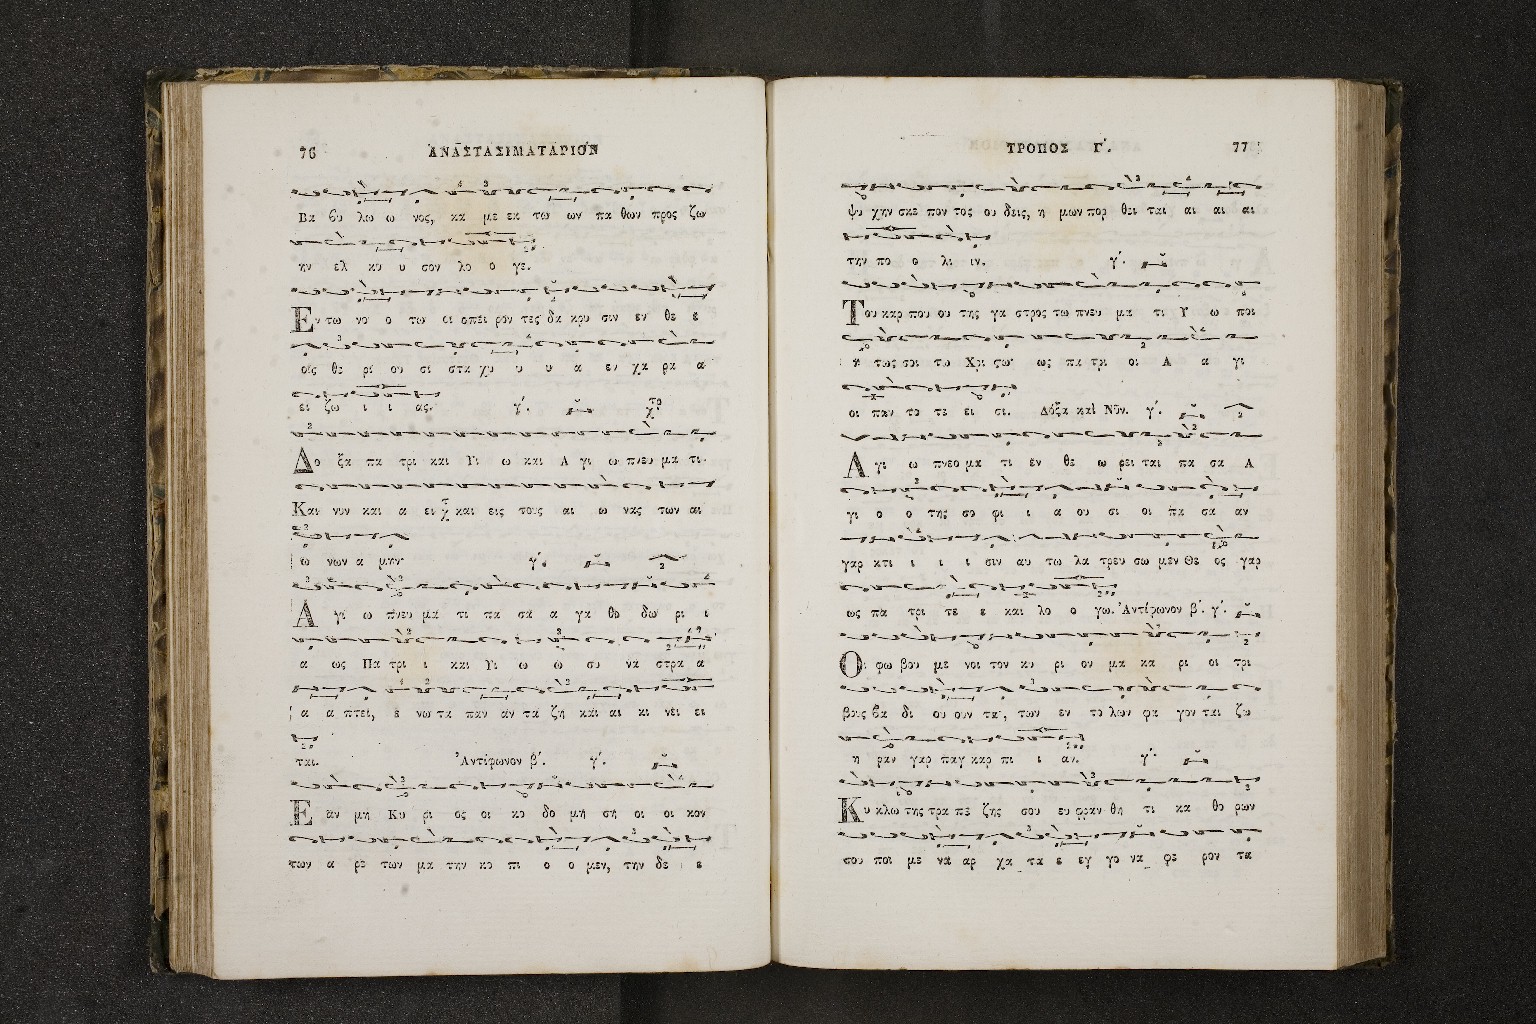 76 ΑΝΑΣΤΑΣΙΜΑΤΑΡΙΟΝ
Βα βυ λω ω νος, κα με εκ τω ων πα θων προς ζω
ην ελ κυ υ σον λο ο γε.
Εν τω νο ο τω οι σπει ρον τες δα κρυ σιν εν θε ε
οις θε ρι ου σι στα χυ υ υ α εν χα ρα α
ει ζω ι ι ας. γ΄.
Δο ξα πα τρι και Υι ω και Α γι ω πνευ μα τι·
Και νυν και α ει και εις τους αι ω νας των αι
ω νων α μην·
Α γι ω πνευ μα τι πα σα α γα θο δω ρι ι
α ως Πα τρι ι και Υι ω ω συ να στρα α
α α πτει, ε νω τα παν αν τα ζη και αι κι νει ει
ται. Ἀντίφωνον β΄. γ΄.
Ε αν μη Κυ ρι ος οι κο δο μη ση οι οι κον
των α ρε των μα την κο πι ο ο μεν, την δε ε
ΤΡΟΠΟΣ Γ΄. 77
ψυ χην σκε πον τος ου δεις, η μων πορ θει ται αι αι αι
την πο ο λι ιν. γ΄.
Του καρ που ου της γα στρος τω πνευ μα τι Υ ω ποι
η τως σοι τω Χρι στω· ως πα τρι οι Α α γι
οι παν το τε ει σι. Δόξα καὶ Νῦν. γ΄.
Α γι ω πνευ μα τι εν θε ω ρει ται πα σα Α
γι ο ο της σο φι ι α ου σι οι πα σα αν
γαρ κτι ι ι ι σιν αυ τω λα τρευ σω μεν Θε ος γαρ
ως πα τρι τε ε και λο ο γω. Ἀντίφωνον β΄. γ΄.
Οι φω βου με νοι τον κυ ρι ον μα κα ρι οι τρι
βους βα δι ου ουν ται, των εν το λων φα γον ται ζω
η ραν γαρ παγ καρ πι ι αν. γ΄.
Κυ κλω της τρα πε ζης σου ευ φραν θη τι κα θο ρων
σου ποι με να αρ χα τα ε εγ γο να φε ρον τα